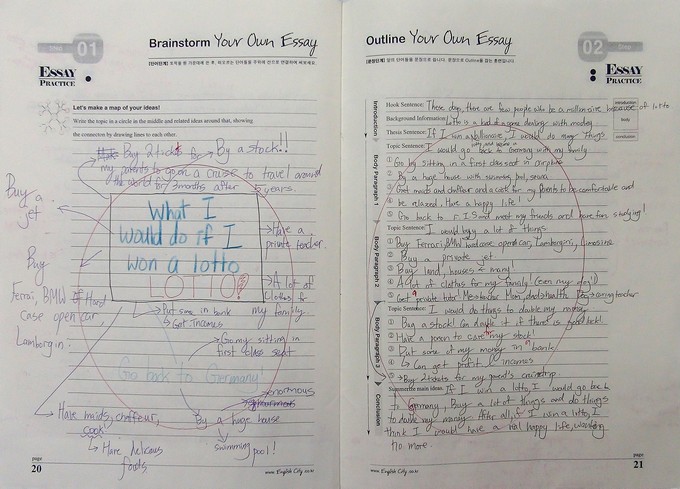 Step 01
Brainstorm Your Own Essay
ESSAY
PRACTICE
Let's make a map of your ideas!
Write the topic in a circle in the middle and related ideas around that, showing
the connection by drawing lines to each other.
Buy 2 tickets for
By a stock!!
my parents to open a cruise to travel around
the world for 3 months after years.
Buy a
jet
What I
would do if I
won a lotto
LOTTO
Have a
private teacher.
A lot of
clothes for
my family.
Buy
Ferrai, BMW of Hard
case open car
Lamborgin.
Put some in bank
Get incomes
Go my sitting in
first class seat
Go back to Germany!
Have maids, chaffeur,
cook
Have delicous
foods
enormous
By a huge house
swimming pool!
page
20
www.English City.co.kr
Outline Your Own Essay
02 Step
ESSAY
PRACTICE
Introduction
Hook Sentence: These days, there are few people who be a millionaire because of lotto
Background Information: Lotto is a kind of game dealings with modey
Thesis Sentence: If I win a millionare, I would do many things
introduction
body
conclusion
Body Paragraph 1
Topic Sentence: I would go back to Germany with my family
① Go by sitting in a first class seat in airplane
② By a huge house with swimming pool,
③ Get maids and chaffeur and a cook for my parents to be comfortable and
④ be relaxed, Have a happy life!
⑤ Go back to ISM and meet my friends and have fun studying!
Body Paragraph 2
Topic Sentence: I would buy a lot of things
① Buy Ferrari, BMW hard case open car, Lamborgini, limosine
② Buy a private jet
③ Buy land, houses many
④ A lot of cloths for my family! (even my dog!)
⑤ Get a private tutor
Body Paragraph 3
Topic Sentence: I would do things to double my money
① Buy a stock! Can double it if there is good luck!
② Have a person to care my stock!
③ Put some of my money in a bank
④ ↳ Can get profit & incomes
⑤ Buy 2 tickets for my parent's cruise trip.
Conclusion
Summarize main ideas: If I win a lotto, I would go back
to Germany, Buy a lot of things and do things
to double my money. After all, if I win a lotto, I
think I would have a real happy life, wanting
no more.
www.English City.co.kr
page
21